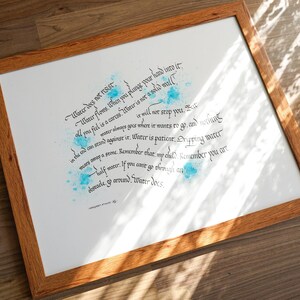 Water does not resist.
Water flows. When you plunge your hand into it,
all you feel is a caress. Water is not a solid wall,
it will not stop you.
water always goes where it wants to go, and nothing
in the end can stand against it. Water is patient. Dripping water
wears away a stone. Remember that, my child. Remember you are
half water. If you can't go through an
obstacle, go around. Water does.